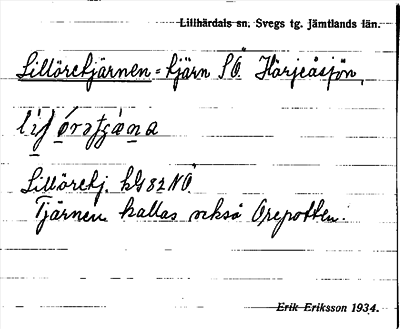 Lillhärdals sn. Svegs tg. Jämtlands län.
Lillöretjärnen = tjärn SÖ Härjeåsjön,
Lillöretj. kG 82 NÖ.
Tjärnen kallas också Örepotten.
Erik Eriksson 1934.